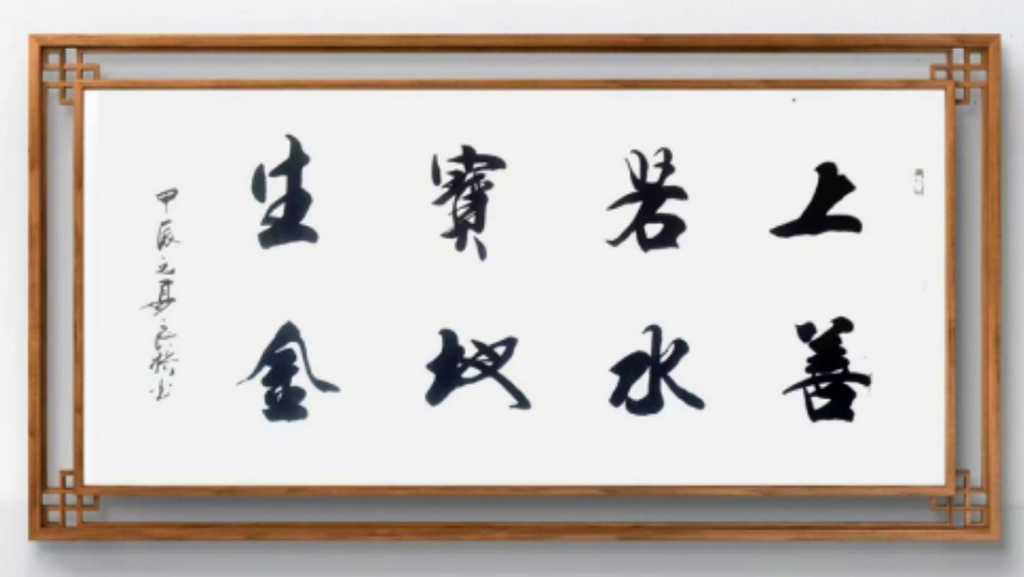 上善
若水
寶地
生金
甲辰之夏